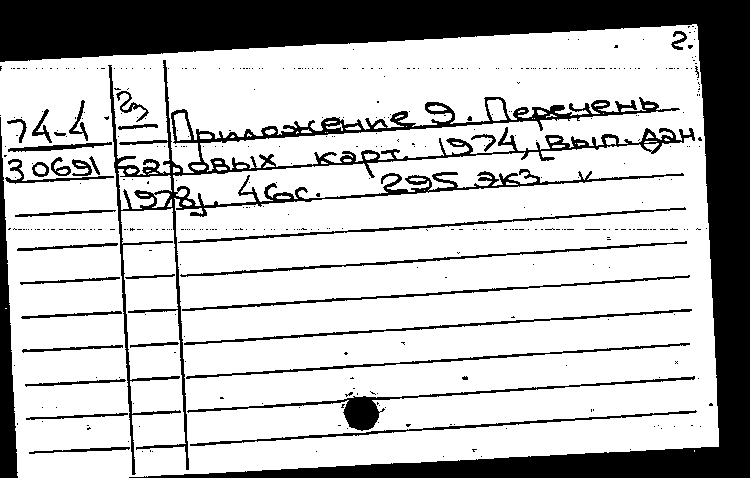 2.
74-4 Приложение 9. Перечень
30691 базовых карт. 1974, [вып. дан.
1978]. 46с. 295 экз. v